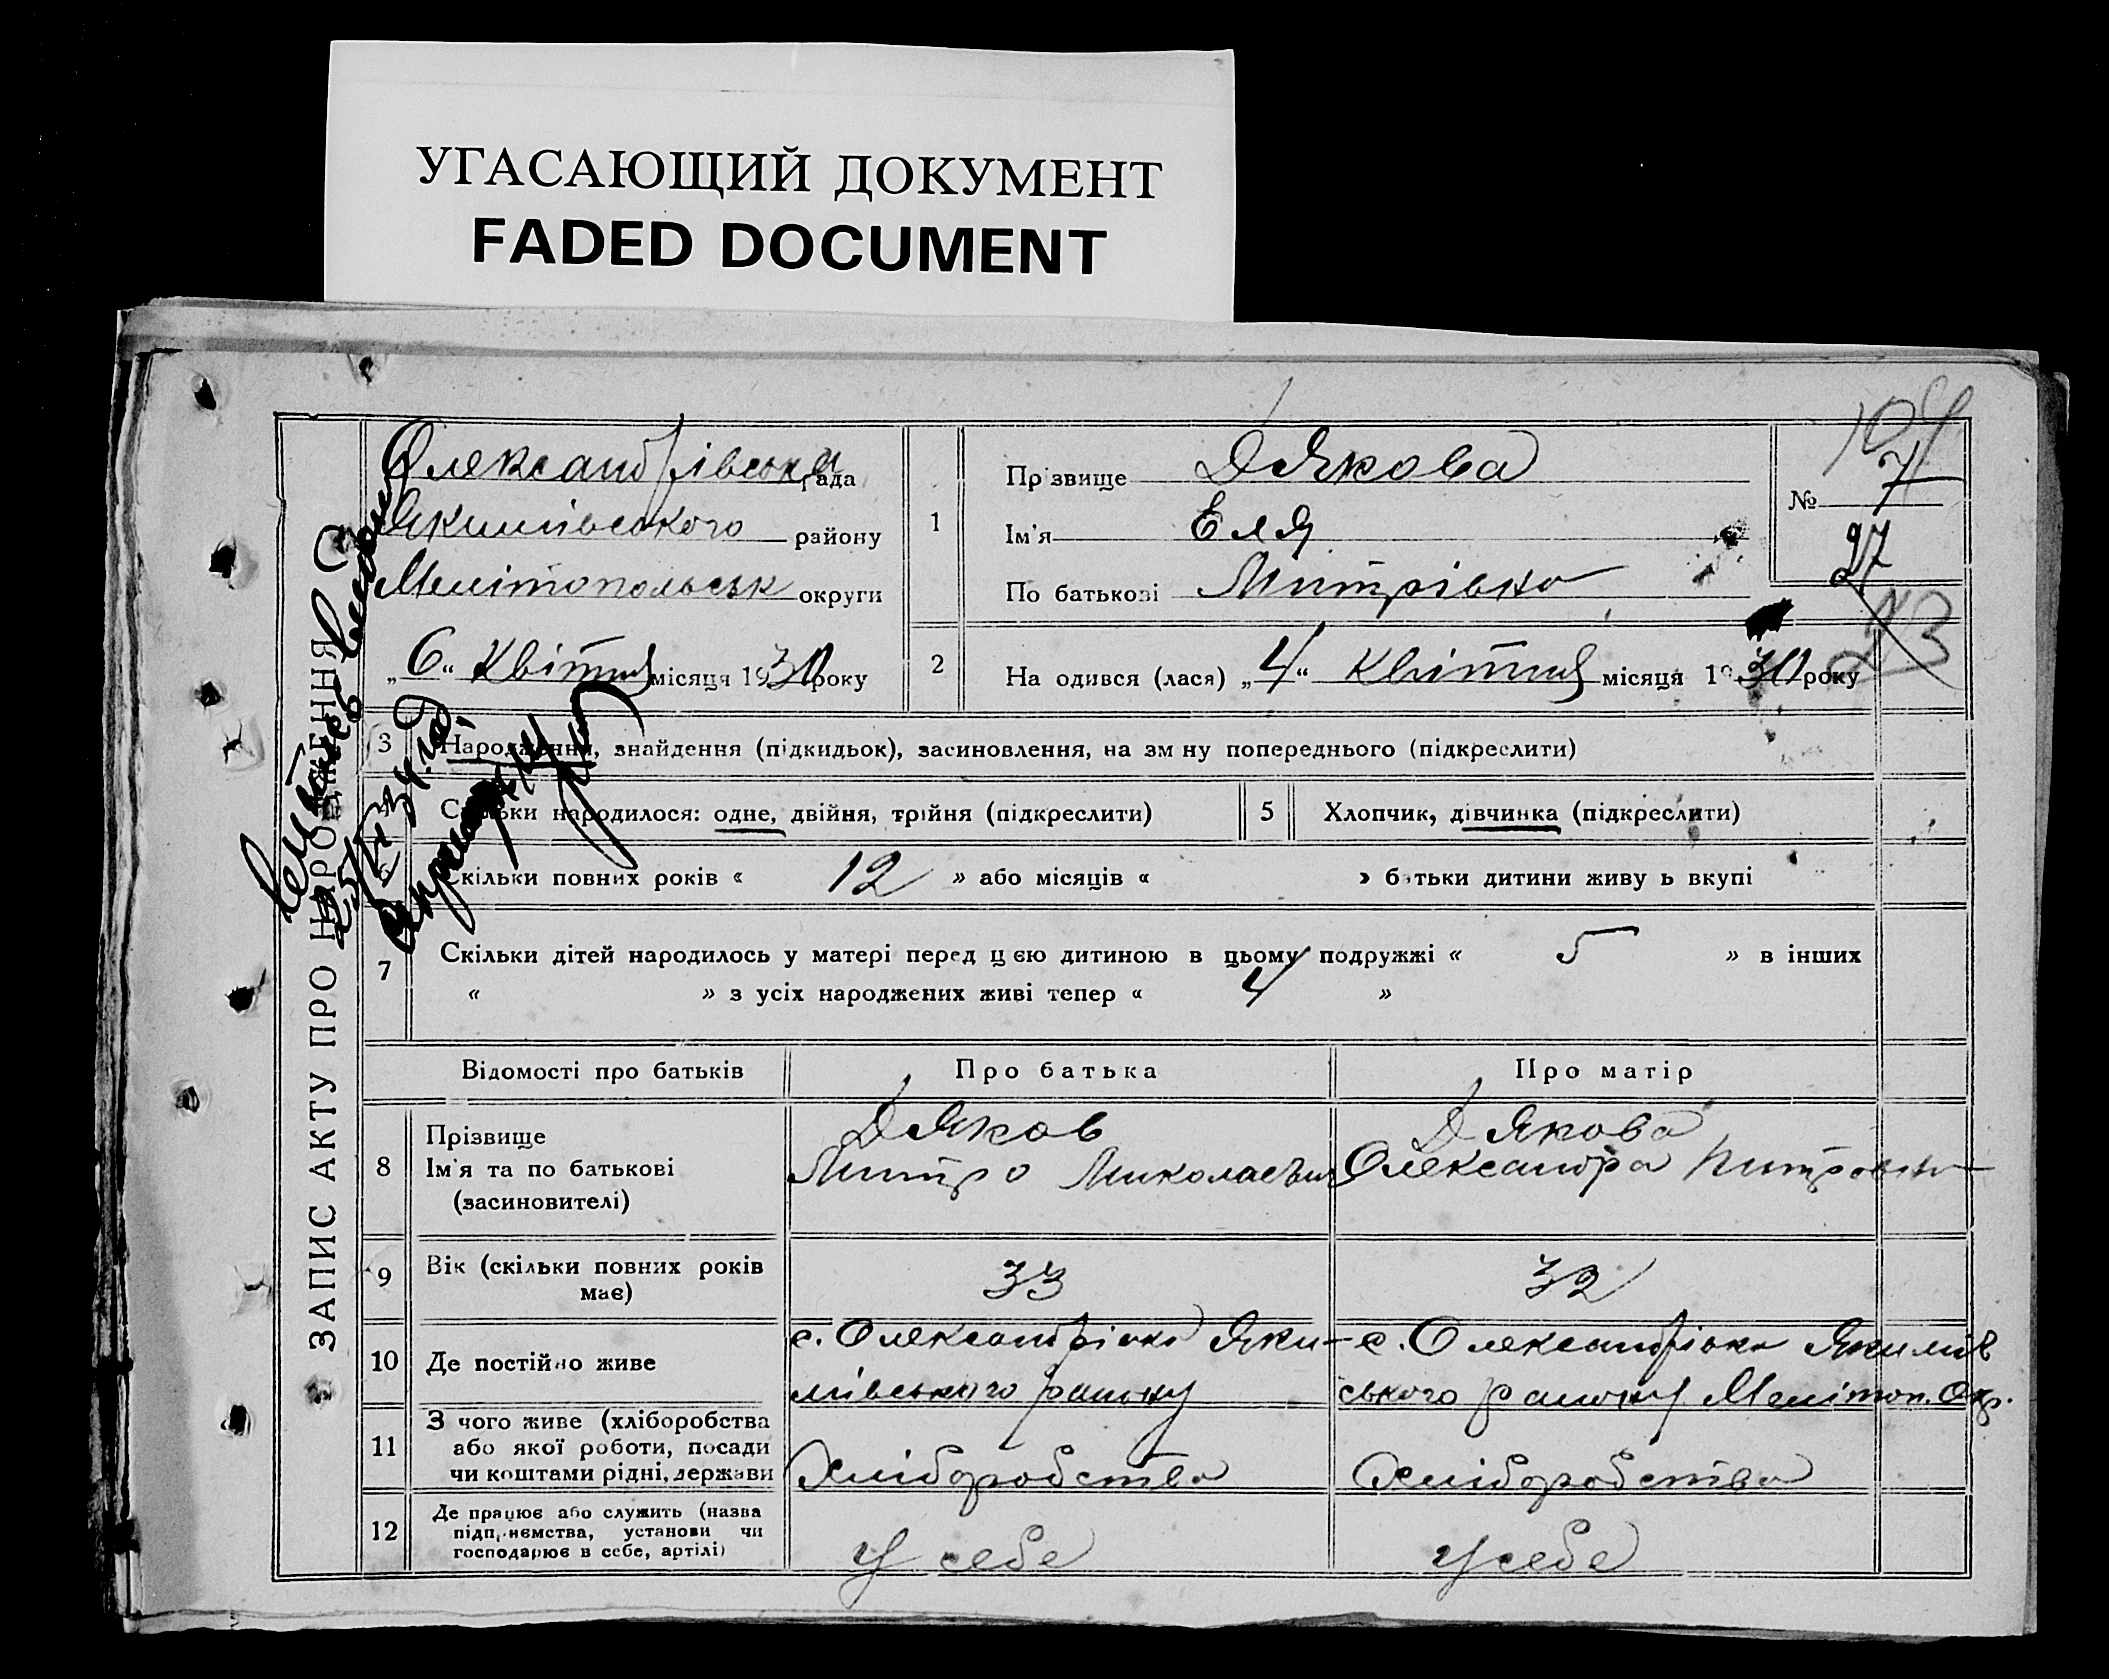 УГАСАЮЩИЙ ДОКУМЕНТ
FADED DOCUMENT
ЗАПИС АКТУ ПРО НАРОДЖЕННЯ
Олександрівська рада
Якимівського району
Мелітопольськ округи
„6“ Квітня місяця 1930 року
1
Прізвище Дякова
Ім'я Еля
По батькові Митрівна
№ 7
27
23
2
На одився (лася) „4“ Квітня місяця 1930 року
3 Народження, знайдення (підкидьок), засиновлення, на зм ну попереднього (підкреслити)
4 Скільки народилося: одне, двійня, трійня (підкреслити)
5 Хлопчик, дівчинка (підкреслити)
6 Скільки повних років « 12 » або місяців « » батьки дитини живу ь вкупі
7 Скільки дітей народилось у матері перед цією дитиною в цьому подружжі « 5 » в інших
« » з усіх народжених живі тепер « 4 »
Відомості про батьків Про батька Про матір
8 Прізвище Дяков Дякова
Ім'я та по батькові Митро Миколаєвич Олександра
(засиновителі)
9 Вік (скільки повних років має) 33 32
10 Де постійно живе
с. Олександрівка Яки-
мівського району
с. Олександрівка Якимів
ського району Мелітоп. Окр.
11 З чого живе (хліборобства
або якої роботи, посади
чи коштами рідні, держави
Хліборобство Хліборобство
12 Де працює або служить (назва
підприємства, установи чи
господарює в себе, артілі)
У себе У себе